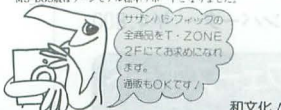 サザンパシフィックの
全商品をT・ZONE
2Fにてお求めになれ
ます。
通販もOKです!
和文化